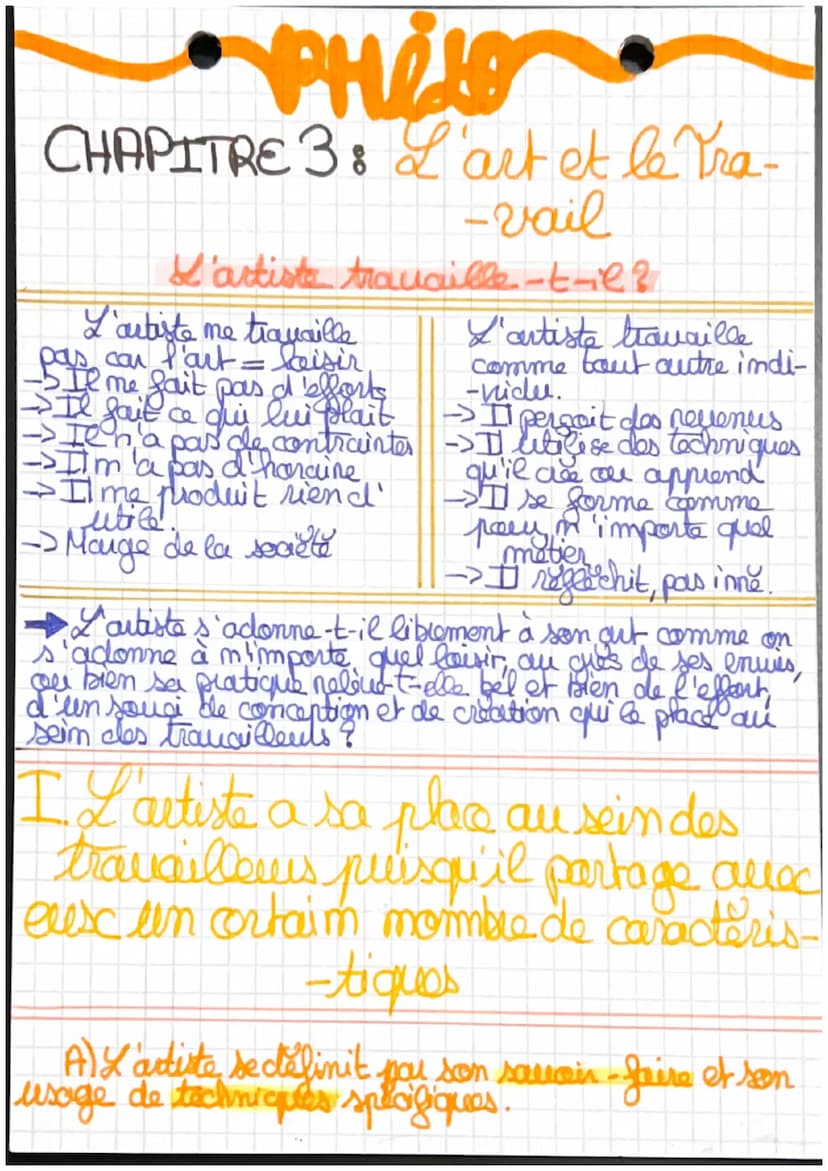 PHILO
CHAPITRE 3 : L'art et le Tra-
-vail
L'artiste travaille-t-il ?
L'artiste ne travaille
pas car l'art = loisir
-> Il ne fait pas d'efforts
-> Il fait ce qui lui plait
-> Il n'a pas de contraintes
-> Il n'a pas d'horaire
-> Il ne produit rien d'
utile.
-> Marge de la société
L'artiste travaille
comme tout autre indi-
-vidu.
-> Il perçoit des revenus
-> Il utilise des techniques
qu'il crée ou apprend
-> Il se forme comme
pour n'importe quel
métier
-> Il réfléchit, pas inné.
➡ L'artiste s'adonne-t-il librement à son art comme on
s'adonne à n'importe quel loisir, au grès de ses envies,
ou bien sa pratique relève-t-elle bel et bien de l'effort,
d'un souci de conception et de création qui le place au
sein des travailleurs ?
I. L'artiste a sa place au sein des
travailleurs puisqu'il partage avec
eux un certain nombre de caractéris-
-tiques
A) L'artiste se définit par son savoir-faire et son
usage de techniques spécifiques.